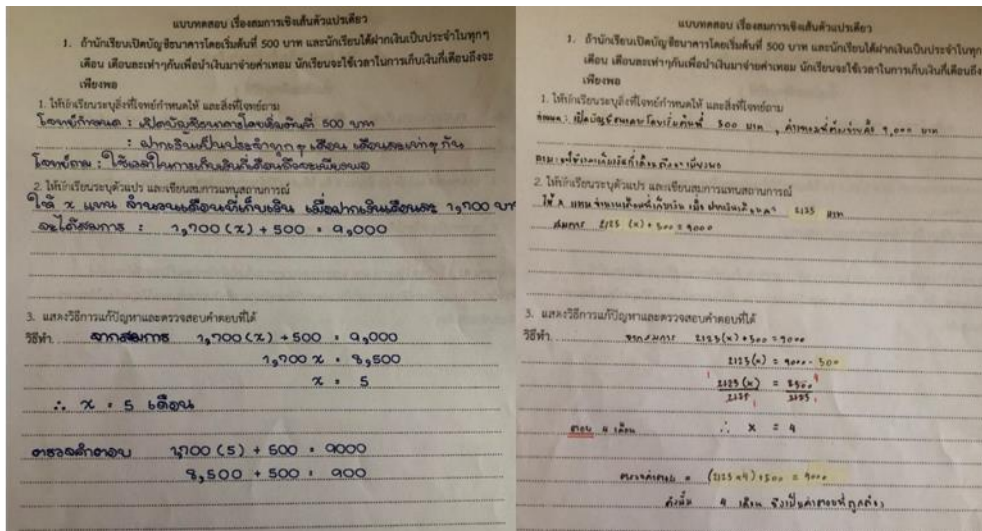 แบบทดสอบ เรื่องสมการเชิงเส้นตัวแปรเดียว
1. ถ้านักเรียนเปิดบัญชีธนาคารโดยเริ่มต้นที่ 500 บาท และนักเรียนได้ฝากเงินเป็นประจำในทุกๆ
เดือน เดือนละเท่าๆกันเพื่อนำเงินมาจ่ายค่าเทอม นักเรียนจะใช้เวลาในการเก็บเงินกี่เดือนถึงจะ
เพียงพอ
1. ให้นักเรียนระบุสิ่งที่โจทย์กำหนดให้ และสิ่งที่โจทย์ถาม
โจทย์กำหนด : เปิดบัญชีธนาคารโดยเริ่มต้นที่ 500 บาท
: ฝากเงินเป็นประจำทุกๆ เดือน เดือนละเท่าๆ กัน
โจทย์ถาม : ใช้เวลาในการเก็บเงินกี่เดือนถึงจะเพียงพอ
2. ให้นักเรียนระบุตัวแปร และเขียนสมการแทนสถานการณ์
ให้ x แทน จำนวนเดือนที่เก็บเงิน เมื่อฝากเงินเดือนละ 1,700 บาท
จะได้สมการ : 1,700 (x) + 500 = 9,000
3. แสดงวิธีการแก้ปัญหาและตรวจสอบคำตอบที่ได้
วิธีทำ จากสมการ 1,700 (x) + 500 = 9,000
1,700 x = 8,500
x = 5
∴ x = 5 เดือน
ตรวจคำตอบ 1,700 (5) + 500 = 9000
8,500 + 500 = 900
แบบทดสอบ เรื่องสมการเชิงเส้นตัวแปรเดียว
1. ถ้านักเรียนเปิดบัญชีธนาคารโดยเริ่มต้นที่ 500 บาท และนักเรียนได้ฝากเงินเป็นประจำในทุก
เดือน เดือนละเท่าๆกันเพื่อนำเงินมาจ่ายค่าเทอม นักเรียนจะใช้เวลาในการเก็บเงินกี่เดือนถึง
เพียงพอ
1. ให้นักเรียนระบุสิ่งที่โจทย์กำหนดให้ และสิ่งที่โจทย์ถาม
กำหนด : เปิดบัญชีธนาคารโดยเริ่มต้นที่ 500 บาท , ค่าเทอมที่ต้องจ่ายคือ 9,000 บาท
ถาม : จะใช้เวลาเก็บเงินกี่เดือนถึงจะเพียงพอ
2. ให้นักเรียนระบุตัวแปร และเขียนสมการแทนสถานการณ์
ให้ x แทน จำนวนเดือนที่เก็บเงิน เมื่อ ฝากเงินเดือนละ 2125 บาท
สมการ 2125 (x) + 500 = 9000
3. แสดงวิธีการแก้ปัญหาและตรวจสอบคำตอบที่ได้
วิธีทำ จากสมการ 2125(x) + 500 = 9000
2125(x) = 9000 - 500
2125 (x) = 8500
2125 2125
ตอบ 4 เดือน ∴ x = 4
ตรวจคำตอบ = (2125 × 4) + 500 = 9000
ดังนั้น 4 เดือน จึงเป็นคำตอบที่ถูกต้อง